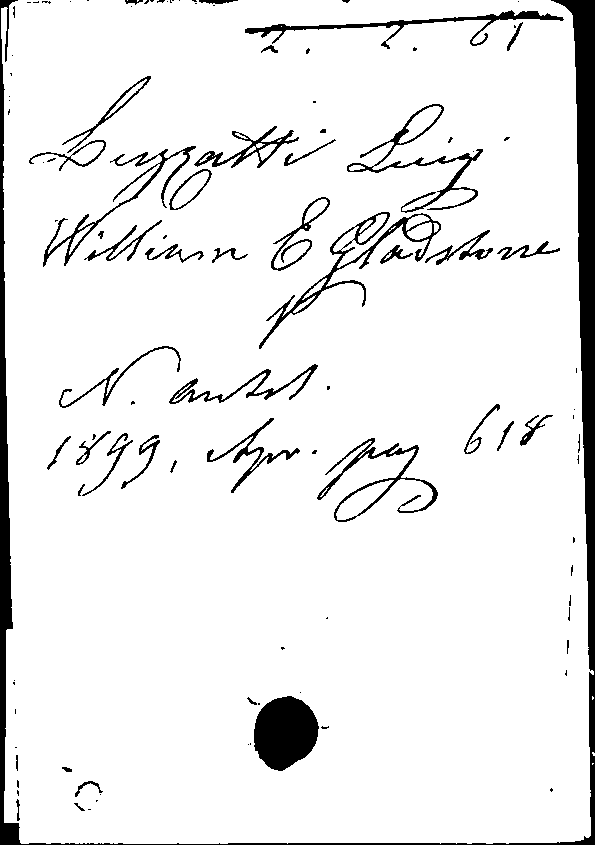 2. 2. 61
Luzzatti Luigi
William E Gladstone
N. antol.
1899, Apr. pag 618